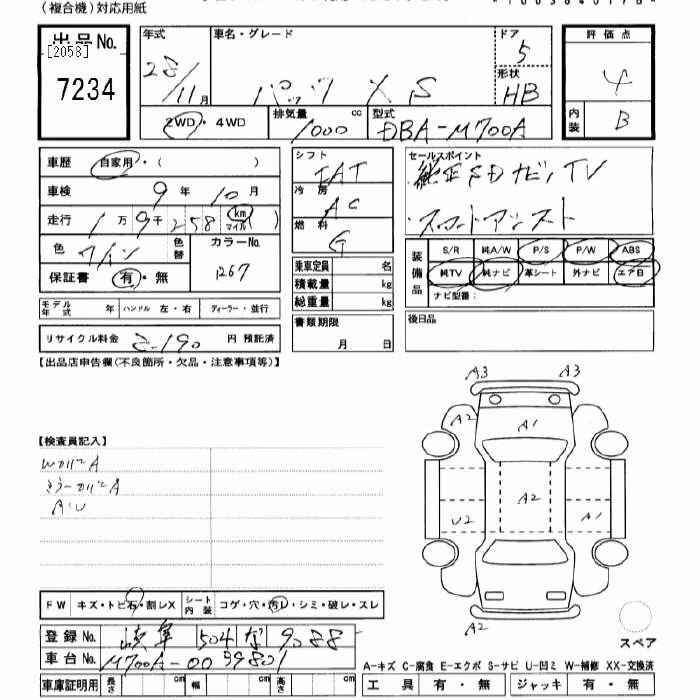 (複合機)対応用紙
出品No.
[2058]
7234
年式 28/11月
車名・グレード パッソ XS
ドア 5
形状 HB
2WD・4WD
排気量 1000 cc
型式 DBA-M700A
評価点 4
内装 B
車歴 自家用・( )
車検 9年 10月
走行 1万9千258 km マイル )
色 ワイン 色替
カラーNo. R67
保証書 有・無
シフト FAT
冷房 AC
燃料 G
乗車定員 名
積載量 kg
総重量 kg
セールスポイント
純正SDナビ,TV
スマートアシスト
装備品 S/R 純A/W P/S P/W ABS
純TV 純ナビ 革シート 外ナビ エアB
ナビ型番:
モデル年式 年 ハンドル 左・右 ディーラー・並行
リサイクル料金 円 預託済
書類期限 月 日
後日品
【出品店申告欄(不良箇所・欠品・注意事項等)】
【検査員記入】
A・U
A3 A3
A2 A1
A2
U2 A1
A2
スペア
FW キズ・トビ石・割レX シート内装 コゲ・穴・汚レ・シミ・破レ・スレ
登録No. 岐阜 504 な 9088
車台No. M700A-0039801
A-キズ C-腐食 E-エクボ S-サビ U-凹ミ W-補修 XX-交換済
車庫証明用 長さ cm 幅 cm 高さ cm
工具 有・無 ジャッキ 有・無